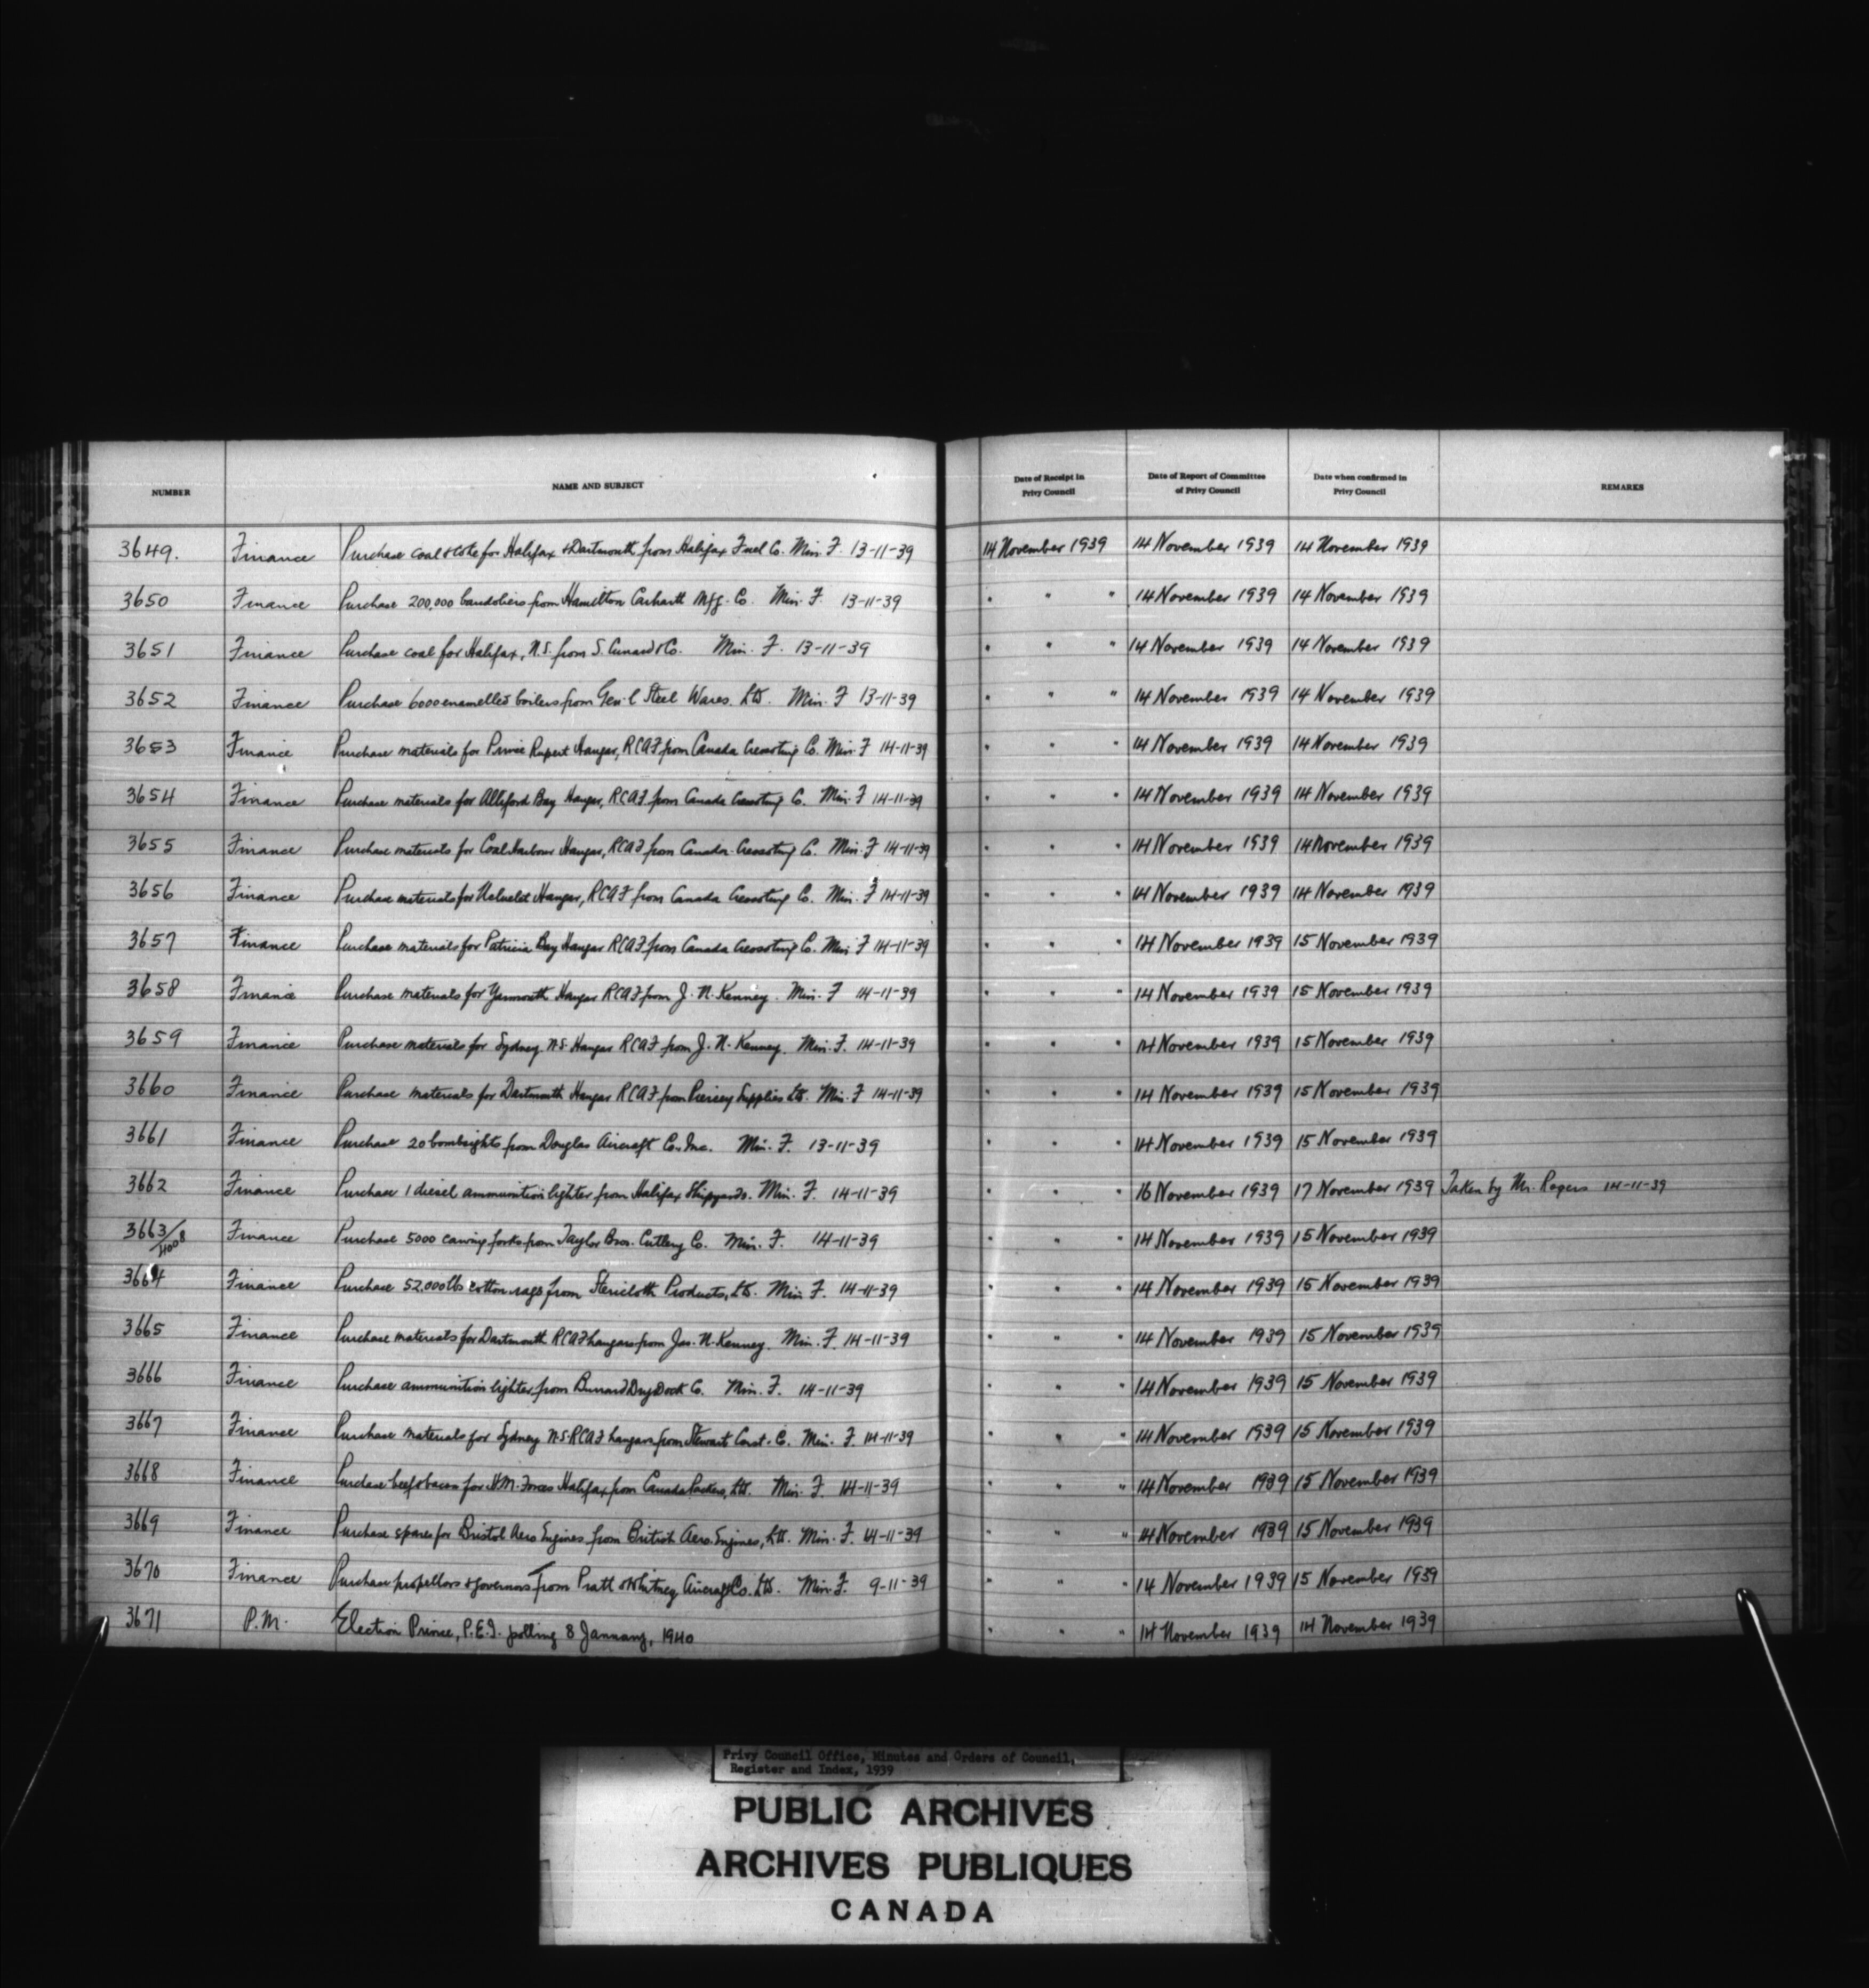 NUMBER NAME AND SUBJECT Date of Receipt in Privy Council Date of Report of Committee of Privy Council Date when confirmed in Privy Council REMARKS
3649. Finance Purchase coal & coke for Halifax & Dartmouth from Halifax Fuel Co. Min. F. 13-11-39 14 November 1939 14 November 1939 14 November 1939
3650 Finance Purchase 200,000 bandoliers from Hamilton Carhartt Mfg. Co. Min. F. 13-11-39 " " " 14 November 1939 14 November 1939
3651 Finance Purchase coal for Halifax, N.S. from S. Cunard & Co. Min. F. 13-11-39 " " " 14 November 1939 14 November 1939
3652 Finance Purchase 6000 enamelled boilers from Gen'l Steel Wares. Ltd. Min. F 13-11-39 " " " 14 November 1939 14 November 1939
3653 Finance Purchase materials for Prince Rupert Hangar, RCAF from Canada Creosoting Co. Min. F 14-11-39 " " " 14 November 1939 14 November 1939
3654 Finance Purchase materials for Alliford Bay Hangar, RCAF from Canada Creosoting Co. Min. F 14-11-39 " " " 14 November 1939 14 November 1939
3655 Finance Purchase materials for Coal Harbour Hangar, RCAF from Canada Creosoting Co. Min. F 14-11-39 " " " 14 November 1939 14 November 1939
3656 Finance Purchase materials for Ucluelet Hangar, RCAF from Canada Creosoting Co. Min. F 14-11-39 " " " 14 November 1939 14 November 1939
3657 Finance Purchase materials for Patricia Bay Hangar RCAF from Canada Creosoting Co. Min. F 14-11-39 " " " 14 November 1939 15 November 1939
3658 Finance Purchase materials for Yarmouth Hangar RCAF from J. N. Kenney. Min. F 14-11-39 " " " 14 November 1939 15 November 1939
3659 Finance Purchase materials for Sydney N.S. Hangar RCAF from J. N. Kenney. Min. F. 14-11-39 " " " 14 November 1939 15 November 1939
3660 Finance Purchase materials for Dartmouth Hangar RCAF from Piercey Supplies Ltd. Min. F 14-11-39 " " " 14 November 1939 15 November 1939
3661 Finance Purchase 20 bombsights from Douglas Aircraft Co. Inc. Min. F. 13-11-39 " " " 14 November 1939 15 November 1939
3662 Finance Purchase 1 diesel ammunition lighter from Halifax Shipyards. Min. F. 14-11-39 " " " 16 November 1939 17 November 1939 Taken by Mr. Rogers 14-11-39
3663/4008 Finance Purchase 5000 carving forks from Taylor Bros. Cutlery Co. Min. F. 14-11-39 " " " 14 November 1939 15 November 1939
3664 Finance Purchase 52,000 lbs cotton rags from Stericloth Products, Ltd. Min F. 14-11-39 " " " 14 November 1939 15 November 1939
3665 Finance Purchase materials for Dartmouth RCAF hangars from Jas. N. Kenney. Min. F. 14-11-39 " " " 14 November 1939 15 November 1939
3666 Finance Purchase ammunition lighter from Burrard Dry Dock Co. Min. F. 14-11-39 " " " 14 November 1939 15 November 1939
3667 Finance Purchase materials for Sydney N.S. RCAF hangars from Stewart Const. Co. Min. F. 14-11-39 " " " 14 November 1939 15 November 1939
3668 Finance Purchase beef & bacon for H.M. Forces Halifax from Canada Packers, Ltd. Min. F. 14-11-39 " " " 14 November 1939 15 November 1939
3669 Finance Purchase spares for Bristol Aero Engines from British Aero. Engines, Ltd. Min. F. 14-11-39 " " " 14 November 1939 15 November 1939
3670 Finance Purchase propellors & governors from Pratt & Whitney Aircraft Co. Ltd. Min. F. 9-11-39 " " " 14 November 1939 15 November 1939
3671 P.M. Election Prince, P.E.I. polling 8 January, 1940 " " " 14 November 1939 14 November 1939
Privy Council Office, Minutes and Orders of Council,
Register and Index, 1939
PUBLIC ARCHIVES
ARCHIVES PUBLIQUES
CANADA